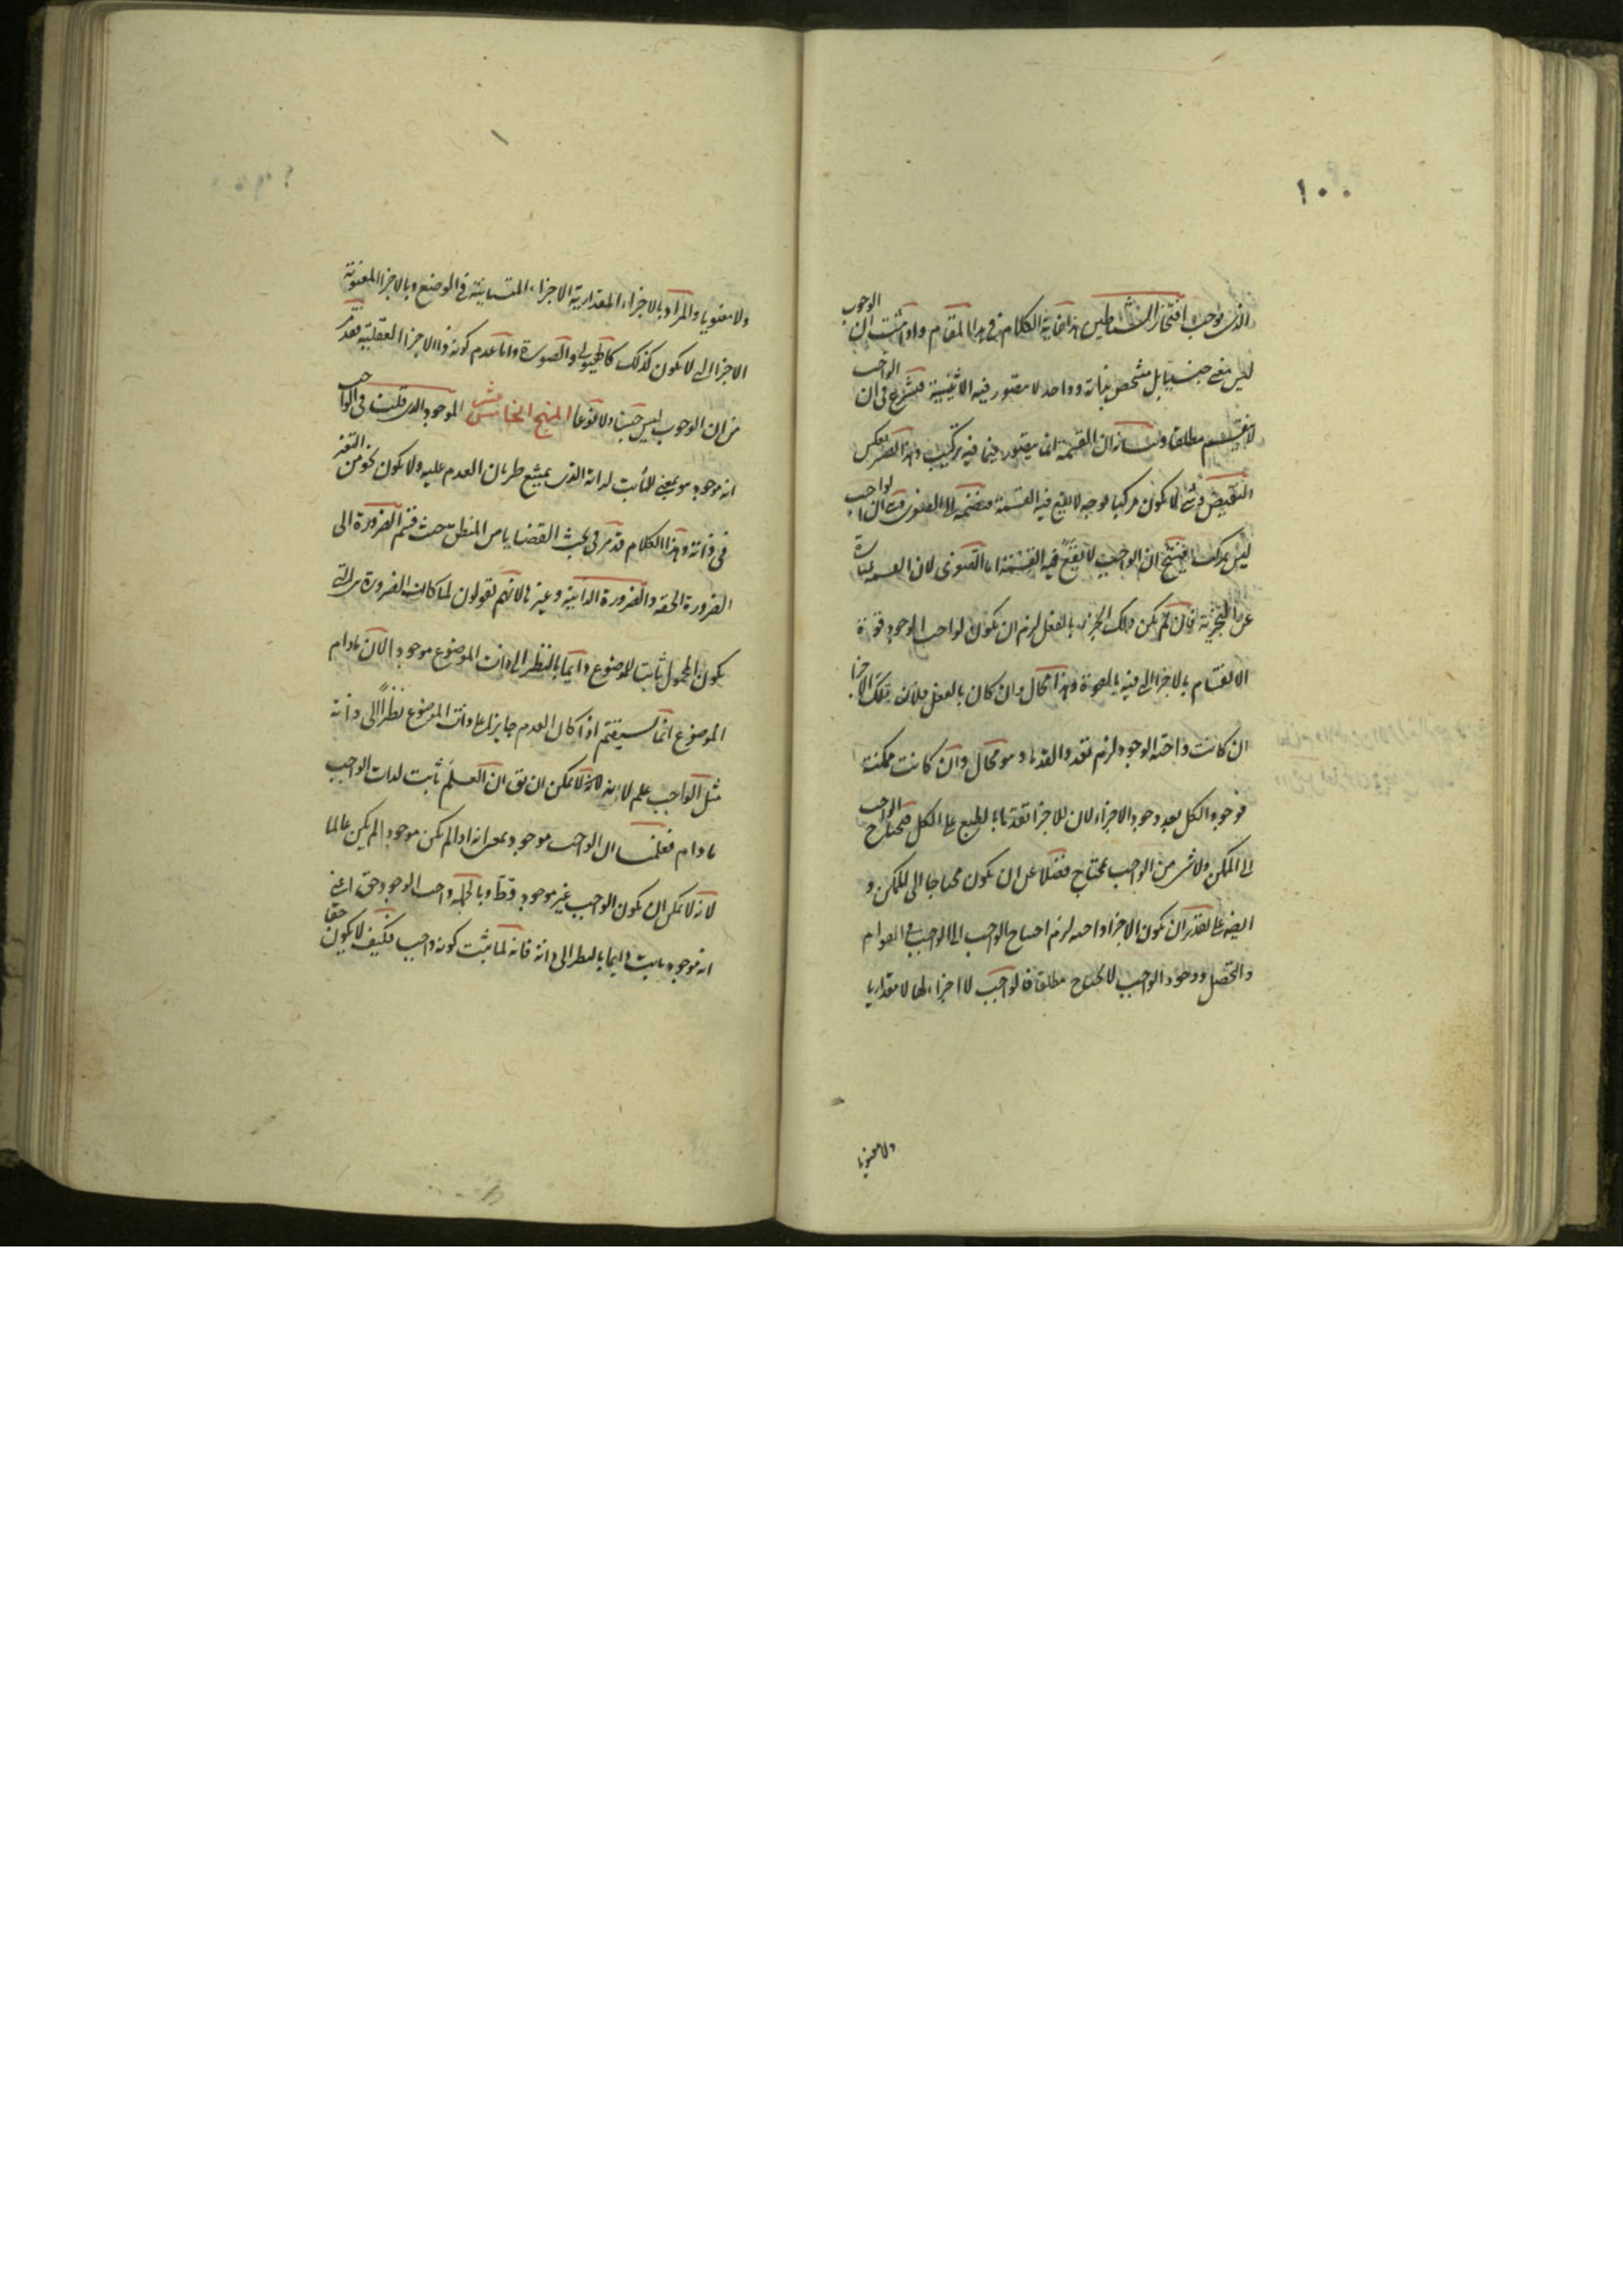 ١٠٠
الذى يوجب افتخار الشياطين هذا غاية الكلام فى هذا المقام واذا ثبت ان الوجوب
ليس معنى جنسيا بل مشخص بذاته وواحد لا يتصور فيه الاثنينية فنشرع فى ان الواجب
لا ينقسم مطلقا وبيانه ان القسمة انما يتصور فيما فيه تركيب وهذا ينعكس
النقيض فى لا يكون مركبا لا يقع فيه القسمة فنضمه الى الصغرى ان الواجب
ليس بمركب فينتج ان الواجب لا يقع فيه القسمة اما الصغرى لان القسمة عبارة
عن التجزئة فان لم يكن ذلك الجزء بالفعل لزم ان يكون لواجب الوجود قوة
الانقسام بالاجزا التى فيه بالقوة وهذا محال وان كان بالفعل فلان تلك الاجزا
ان كانت واجبة الوجود لزم تعدد القدماء وهو محال وان كانت ممكنة
فوجود الكل بعد وجود الاجزاء لان للاجزا تقدما بالطبع على الكل فيحتاج الواجب
الى الممكن ولا شىء من الواجب بمحتاج فضلا عن ان يكون محتاجا الى الممكن و
ايضا على تقدير ان يكون الاجزا واجبة لزم احتياج الواجب الى الواجب فى القوام
والتحصل ووجود الواجب لا يحتاج مطلقا فالواجب لا اجزاء لها لا مقداريا
ولا معنويا
ولا معنويا والمراد بالاجزاء المقدارية الاجزاء المتباينة فى الوضع وبالاجزا المعنوية
الاجزا التى لا يكون كذلك كالهيولى والصورة واما عدم كونه ذا الاجزا العقلية فقد مر
من ان الوجوب ليس جنسا ولا نوعا المنهج الخامس عشر الموجود الذى قلت فى الواجب
انه موجود هو بمعنى الثابت لذاته الذى يمتنع طريان العدم عليه ولا يكون نحو من التغير
فى ذاته وهذا الكلام قد مر فى بحث القضايا من المنطق حيث قسم الضرورة الى
الضرورة الحقة والضرورة الذاتية وغيرها لانهم يقولون لما كانت الضرورة هى التى
يكون المحمول ثابت للموضوع دايما بالنظر الى ذات الموضوع موجودا لان مادام
الموضوع انما يستقيم اذا كان العدم جايز على ذات الموضوع نظرا الى ذاته
مثل الواجب علم لانه لا يمكن ان يق ان العلم ثابت لذات الواجب
مادام فعلمنا ان الواجب موجود بمعنى انه اذا لم يكن موجودا لم يكن عالما
لانه لا يمكن ان يكون الواجب غير موجود قط وبالجملة واجب الوجود حق اعنى
انه موجود ثابت دايما بالنظر الى ذاته فانه لما ثبت كونه واجب فكيف لا يكون حقا